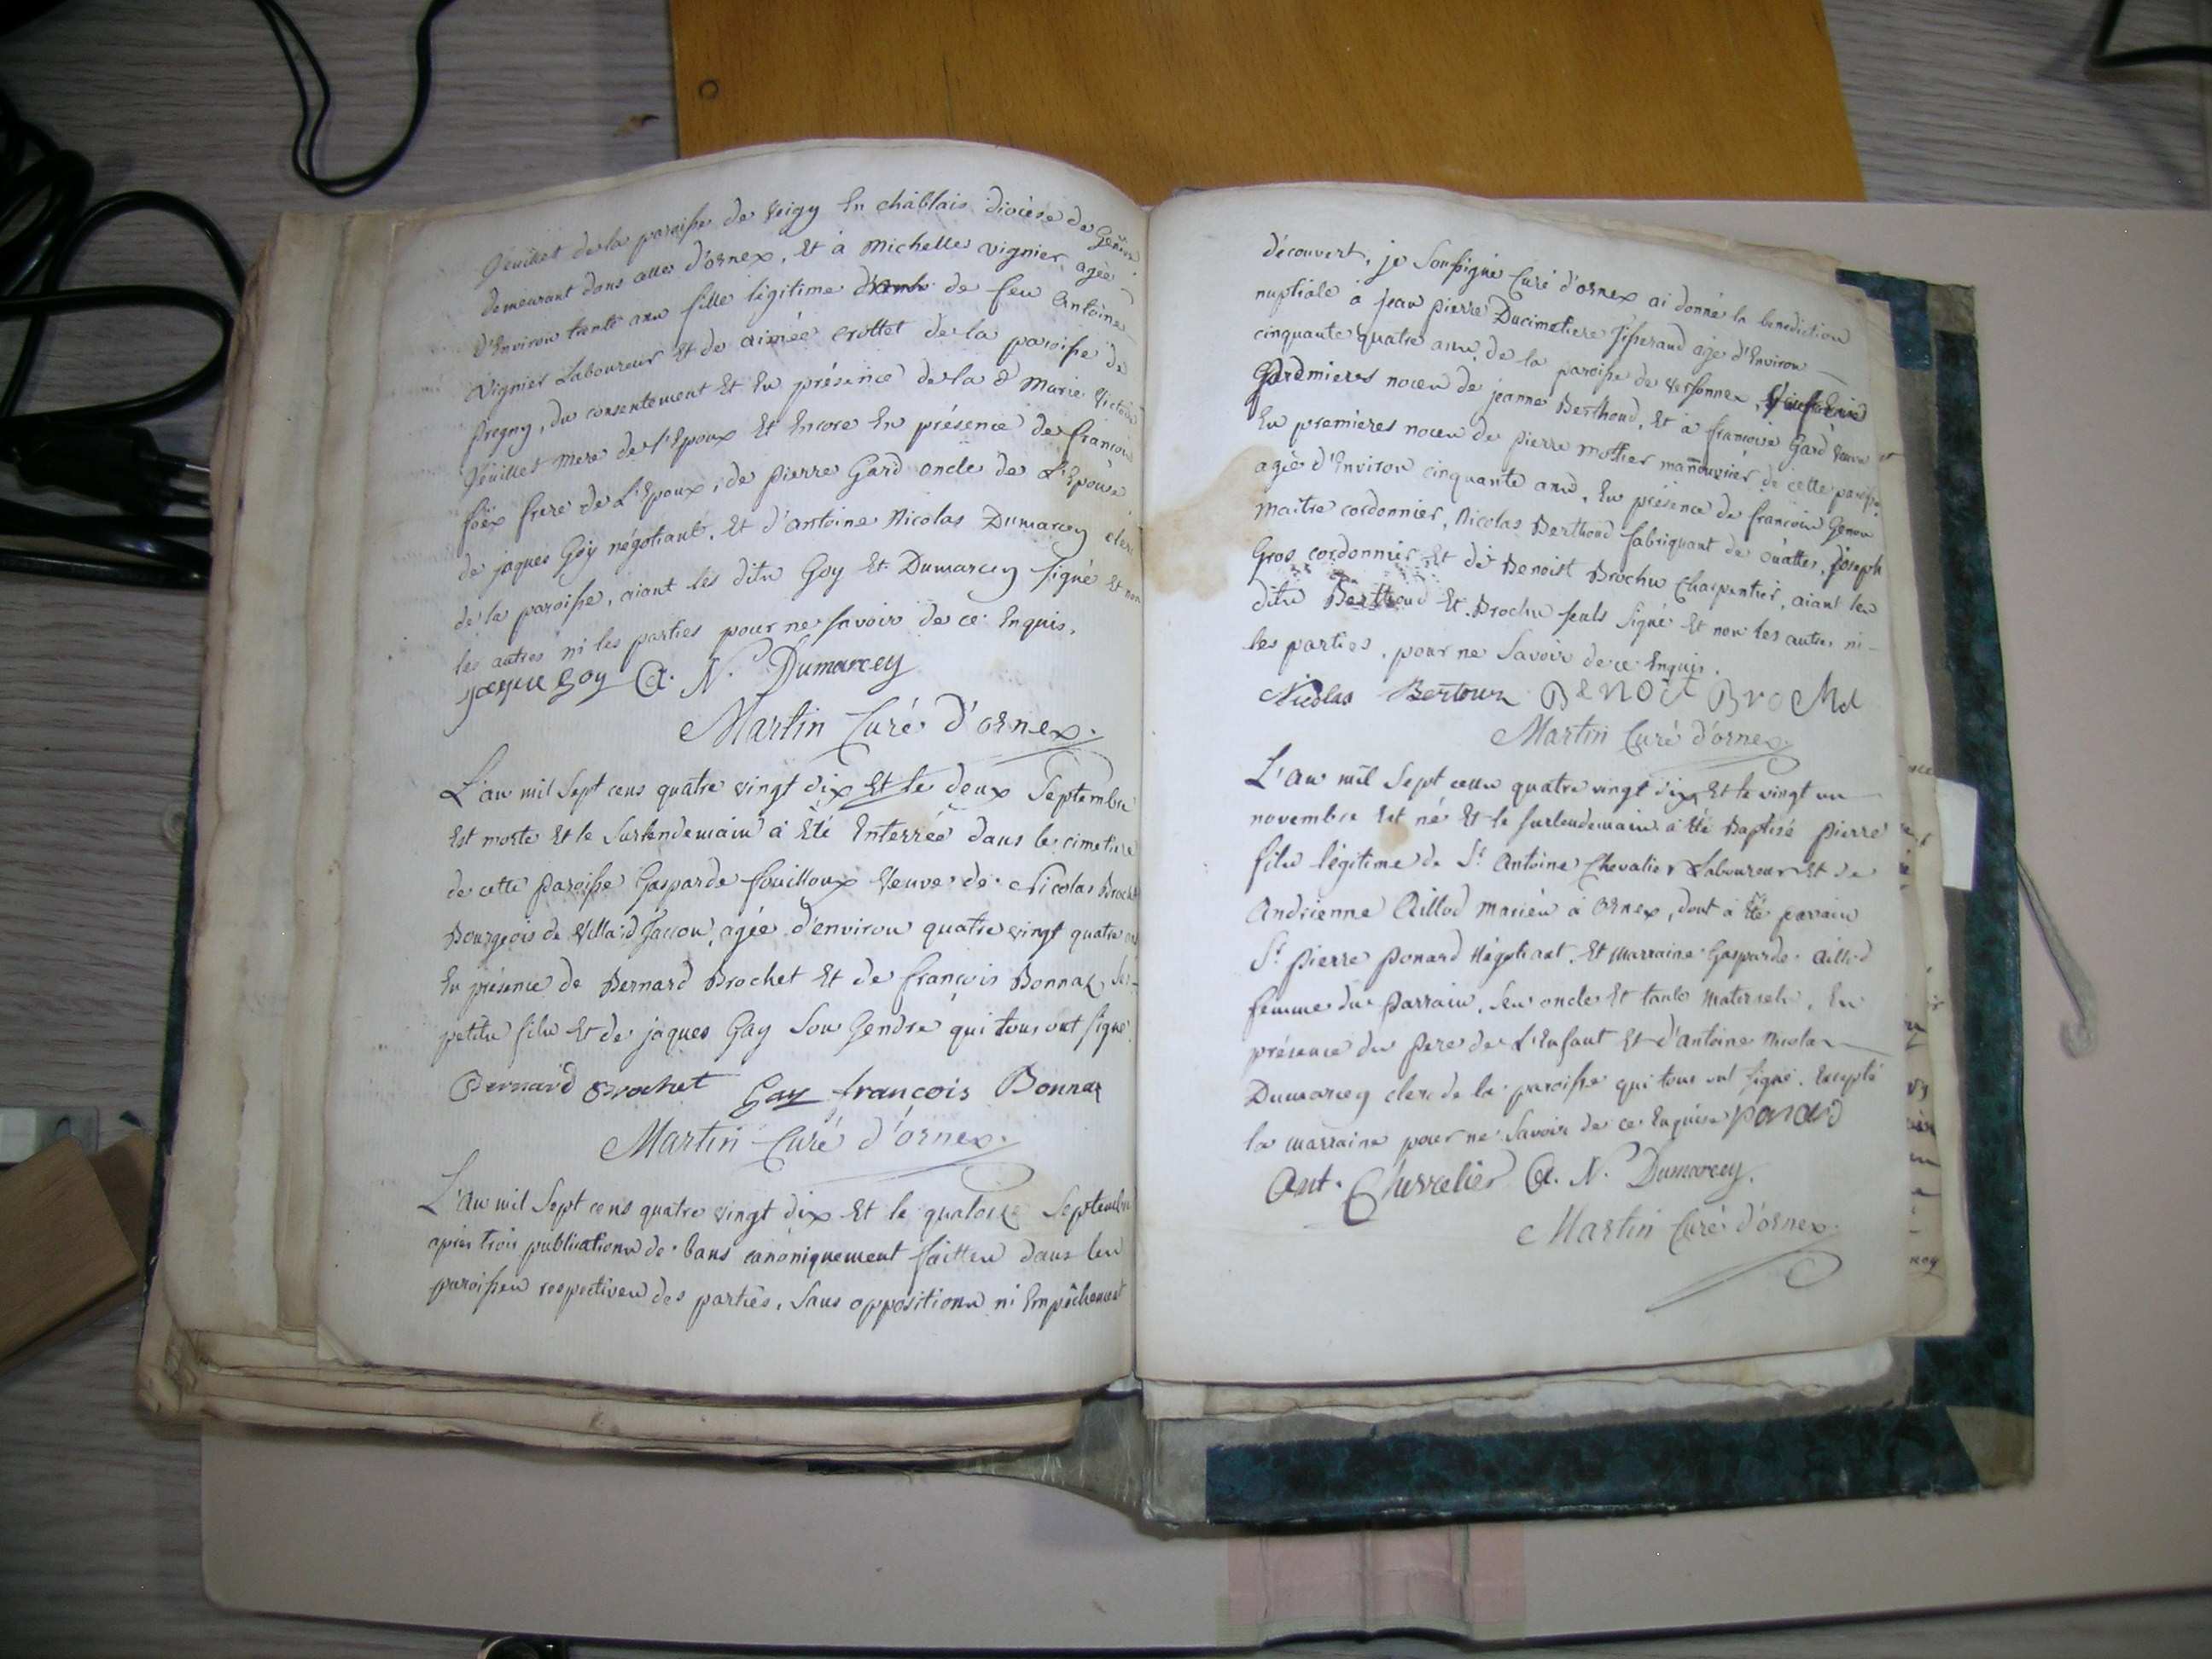 feuillet de la paroisse de Veigy En chablais diocèse de Genève
demeurant dans celle d'ornex, Et à Michelle vignier agée
d'Environ trente ans fille légitime de feu Antoine
Vignier Laboureur Et de aimée crottet de la paroisse de
pregny, du consentement Et En présence de la d. Marie Victoire
feuillet mere de l'Epoux Et Encore En présence de francois
foëx frere de L'Epoux, de pierre Gard oncle de L'Epouse
de jaques Goÿ négotiant, Et d'antoine Nicolas Dumarcey clerc
de la paroisse, aiant les dits Goy Et Dumarcey signé Et non
les autres ni les parties pour ne savoir de ce Enquis.
jaque goy A. N. Dumarcey
Martin Curé d'ornex.
L'an mil Sept cens quatre vingt dix Et le deux Septembre
Est morte Et le Surlendemain a Eté Enterrée dans le cimetiere
de cette paroisse Gasparde fouilloux Veuve de Nicolas Brochet
Bourgeois de Villard Tacon, agée d'environ quatre vingt quatre ans
En présence de Bernard Brochet Et de françois Bonnaz, ses
petits fils Et de jaques Gay Son Gendre qui tous ont signé
Bernard Brochet Gay françois Bonnaz
Martin Curé d'ornex.
L'an mil Sept cens quatre vingt dix Et le quatorze Septembre
apres trois publications de bans canoniquement faittes dans les
paroisses respectives des parties, Sans opposition ni Empêchement
découvert, je Soussigné Curé d'ornex ai donné la benediction
nuptiale à jean pierre Ducimetiere Tisserand agé d'Environ
cinquante quatre ans de la paroisse de Versonnex,
premieres noces de jeanne Berthoud, Et à francoise Gard veuve
En premieres noces de pierre mottier manouvrier de cette paroisse
agée d'Environ cinquante ans, En présence de francois Genou
maitre cordonnier, Nicolas Berthoud fabriquant de ouattes, joseph
Gros cordonnier Et de Benoist Brochu Charpentier, aiant les
dits Berthoud Et Brochu seuls Signé Et non les autres ni
les parties, pour ne Savoir de ce Enquis.
Nicolas BENOIT
Martin Curé d'ornex.
L'an mil Sept cens quatre vingt dix, Et le vingt un
novembre Est né Et le surlendemain a Eté Baptisé pierre
fils légitime de Sr. Antoine Chevalier Laboureur Et de
Andrienne Aillod mariés à Ornex, dont a Eté parain
Sr. pierre ponard Négotiant, Et marraine Gasparde Aillod
femme du Parrain, ses oncle Et tante maternels, En
présence du Pere de L'Enfant Et d'Antoine Nicolas
Dumarcey clerc de la paroisse qui tous ont signé, Excepté
la marraine pour ne Savoir de ce Enquise ponard
Ant. Chevvelier A. N. Dumarcey.
Martin Curé d'ornex.